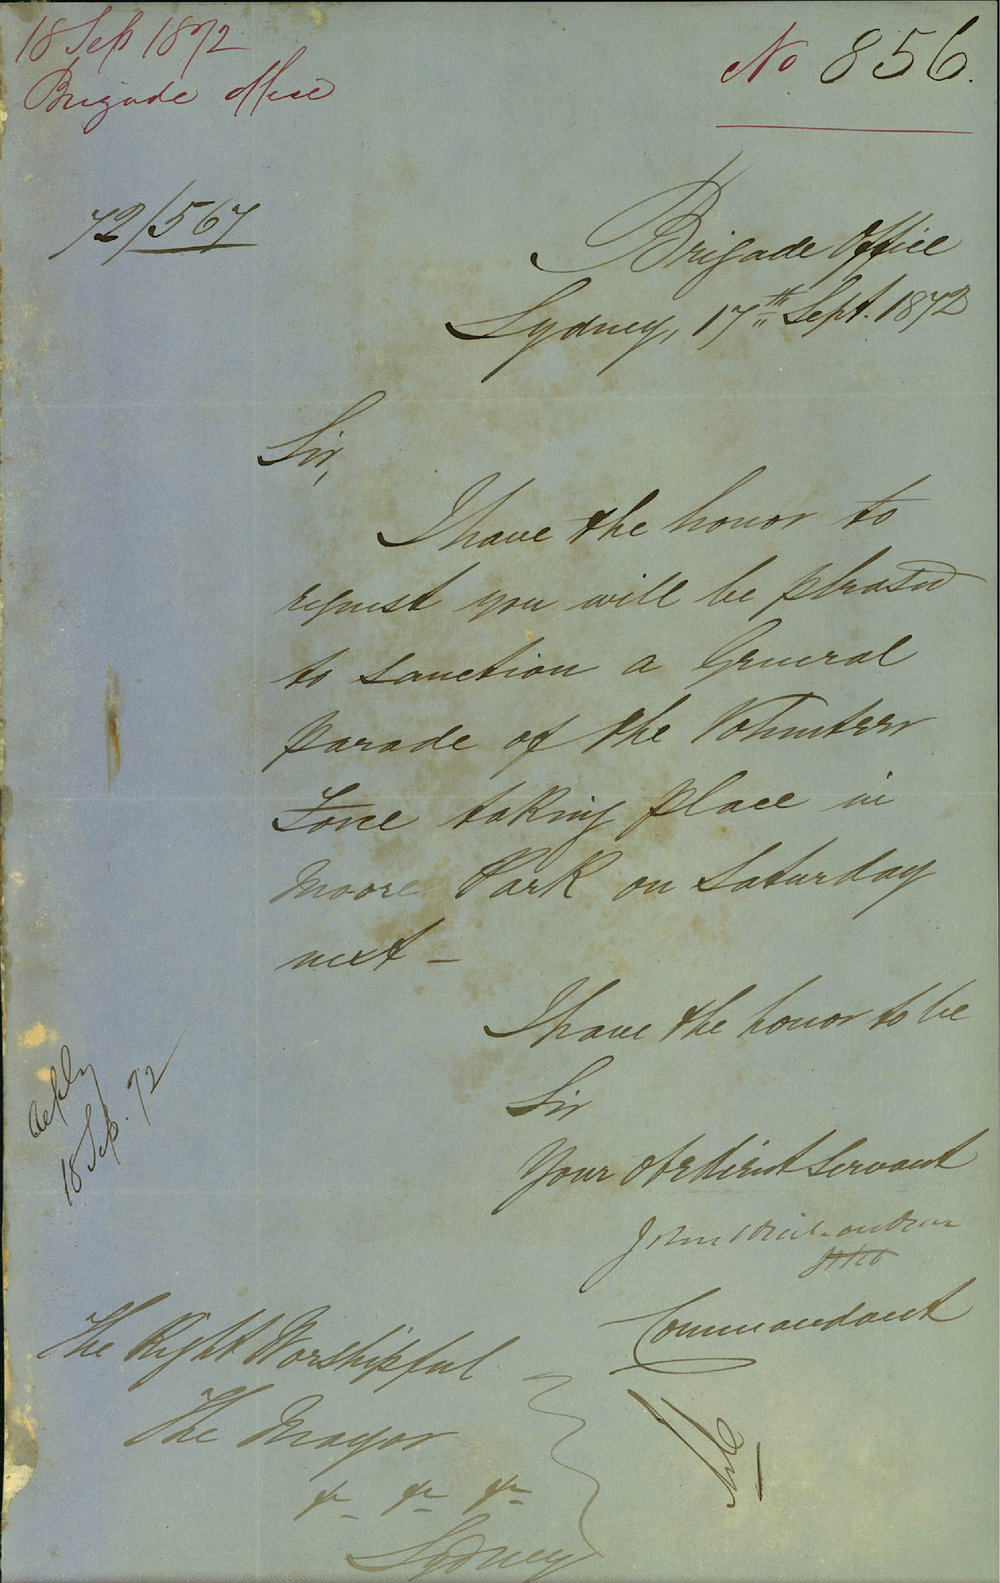 18 Sep 1872
Brigade Office
No 856.
72/567
Brigade Office
Sydney, 17th Sept. 1872
Sir,
I have the honor to
request you will be pleased
to sanction a General
Parade of the Volunteer
Force taking place in
Moore Park on Saturday
next —
I have the honor to be
Sir
Your obedient servant
John Richardson
Commandant
18 Sep. 72
The Right Worshipful
The Mayor
&c &c &c
Sydney